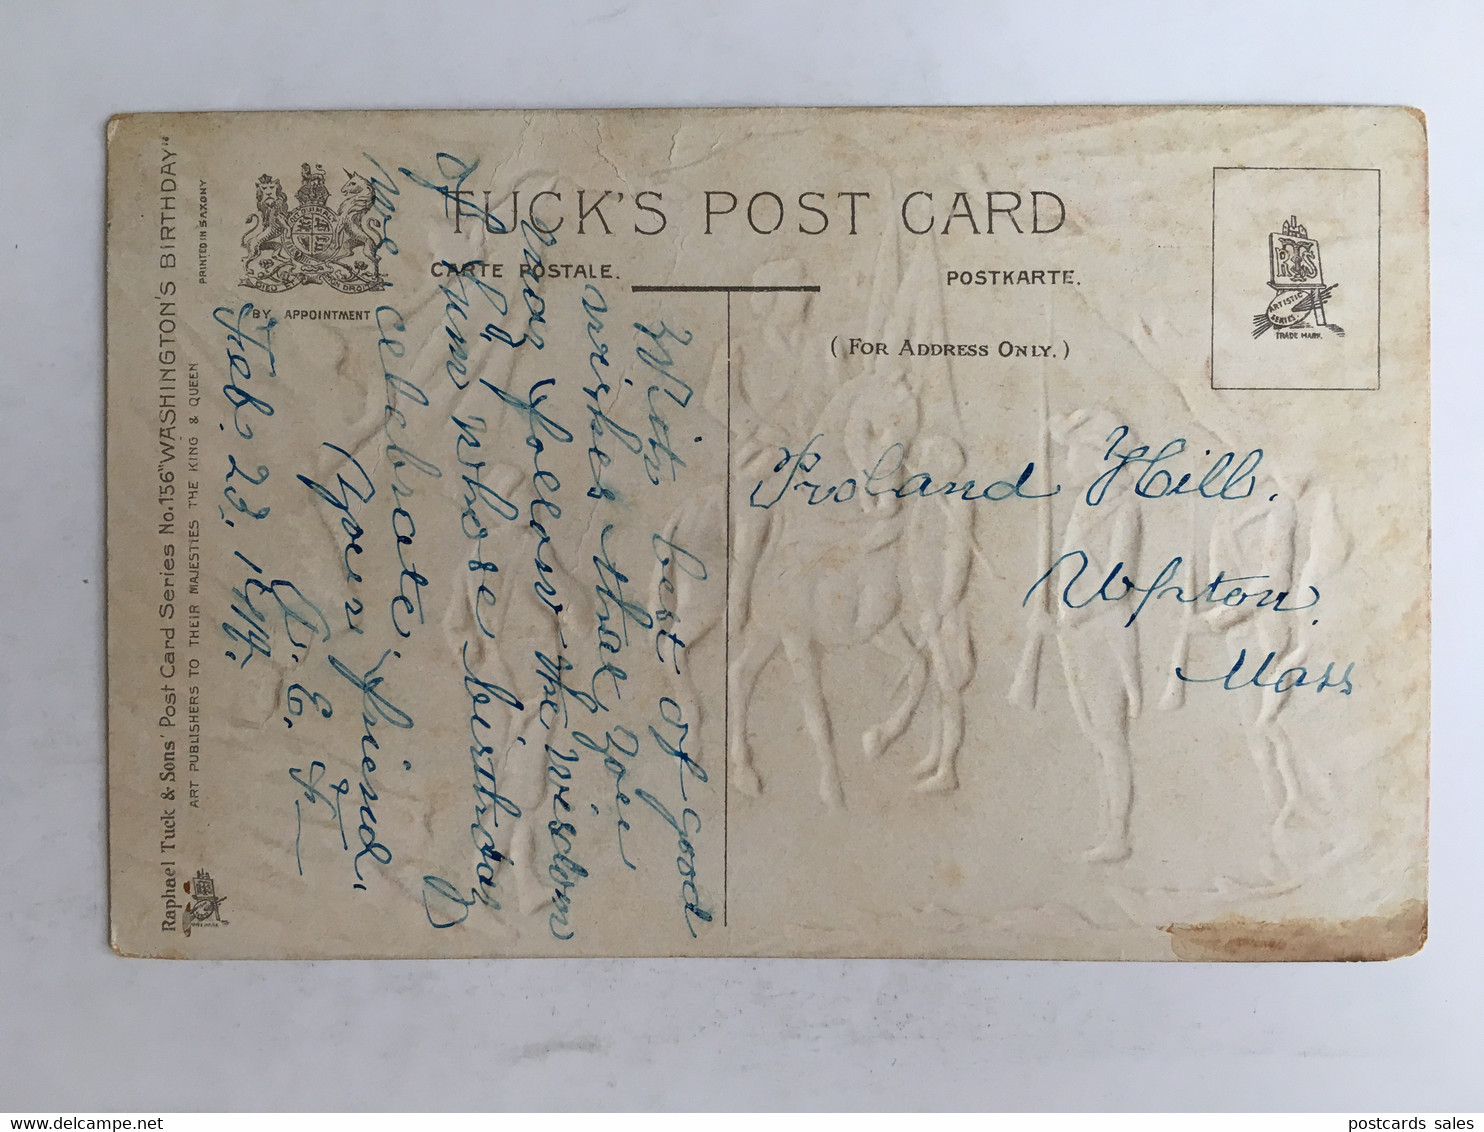 TUCK'S POST CARD
CARTE POSTALE.
POSTKARTE.
(FOR ADDRESS ONLY.)
BY APPOINTMENT
DIEU ET MON DROIT
RTS
ARTISTIC
SERIES.
TRADE MARK.
Raphael Tuck & Sons' Post Card Series No. 156 "WASHINGTON'S BIRTHDAY"
PRINTED IN SAXONY
ART PUBLISHERS TO THEIR MAJESTIES THE KING & QUEEN
With best of good
wishes that you
may follow the wisdom
of him whose birthday
we celebrate.
Your friend.
E. F.
Feb. 22, 19
Roland Hill.
Upton.
Mass
postcards sales